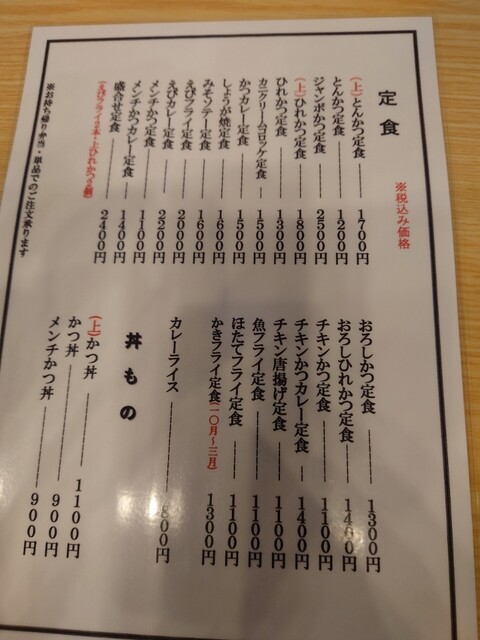 定食
※税込み価格
(上)とんかつ定食 1700円
とんかつ定食 1200円
ジャンボかつ定食 2500円
(上)ひれかつ定食 1800円
ひれかつ定食 1300円
カニクリームコロッケ定食 1500円
かつカレー定食 1500円
しょうが焼定食 1600円
みそソテー定食 1600円
えびフライ定食 2000円
えびカレー定食 2200円
メンチかつ定食 1100円
メンチかつカレー定食 1400円
盛合せ定食 2400円
(えびフライ2本・上ひれかつ2個)
※お持ち帰り弁当・単品でのご注文承ります
おろしかつ定食 1300円
おろしひれかつ定食 1400円
チキンかつ定食 1100円
チキンかつカレー定食 1400円
チキン唐揚げ定食 1100円
魚フライ定食 1100円
ほたてフライ定食 1100円
かきフライ定食(一〇月〜三月) 1300円
カレーライス 800円
丼もの
(上)かつ丼 1100円
かつ丼 900円
メンチかつ丼 900円